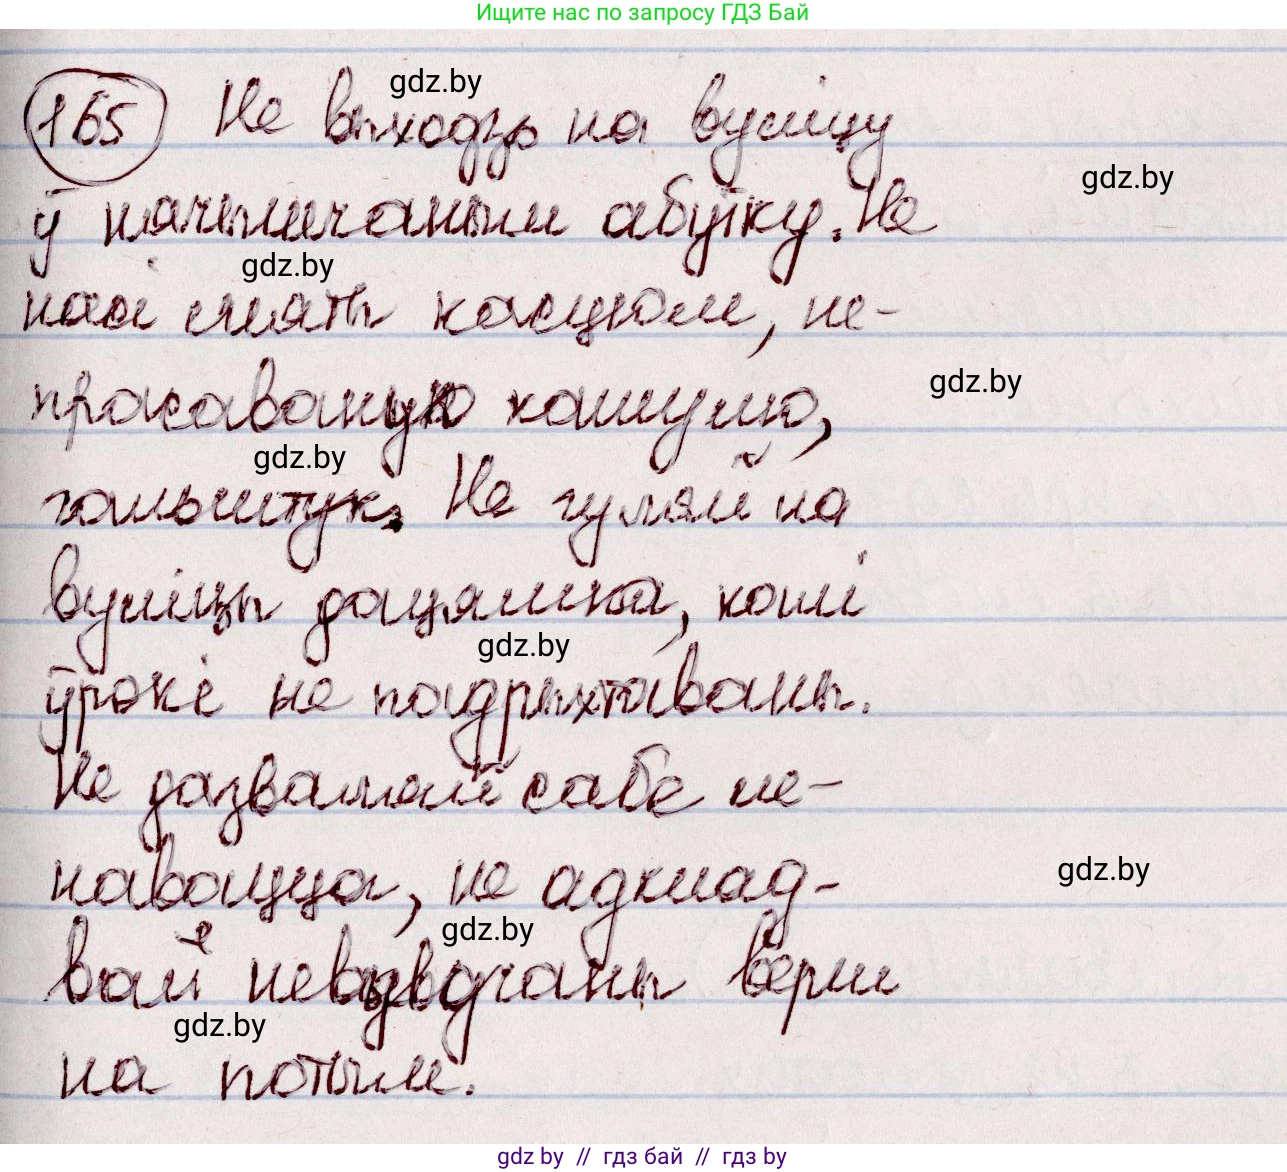 Ищите нас по запросу ГДЗ Бай
gdz.by
165 Не выходзь на вуліцу
gdz.by
ў нячышчаным абутку. Не
gdz.by
насі мяты касцюм, не-
gdz.by
прасаваную кашулю,
gdz.by
гальштук. Не гуляй на
вуліцы дацямна, калі
gdz.by
ўрокі не падрыхтаваны.
Не дазваляй сабе не-
навалцца, не адклад-
gdz.by
gdz.by
вай верш
gdz.by
на потым.
gdz by // гдз бай // гдз by